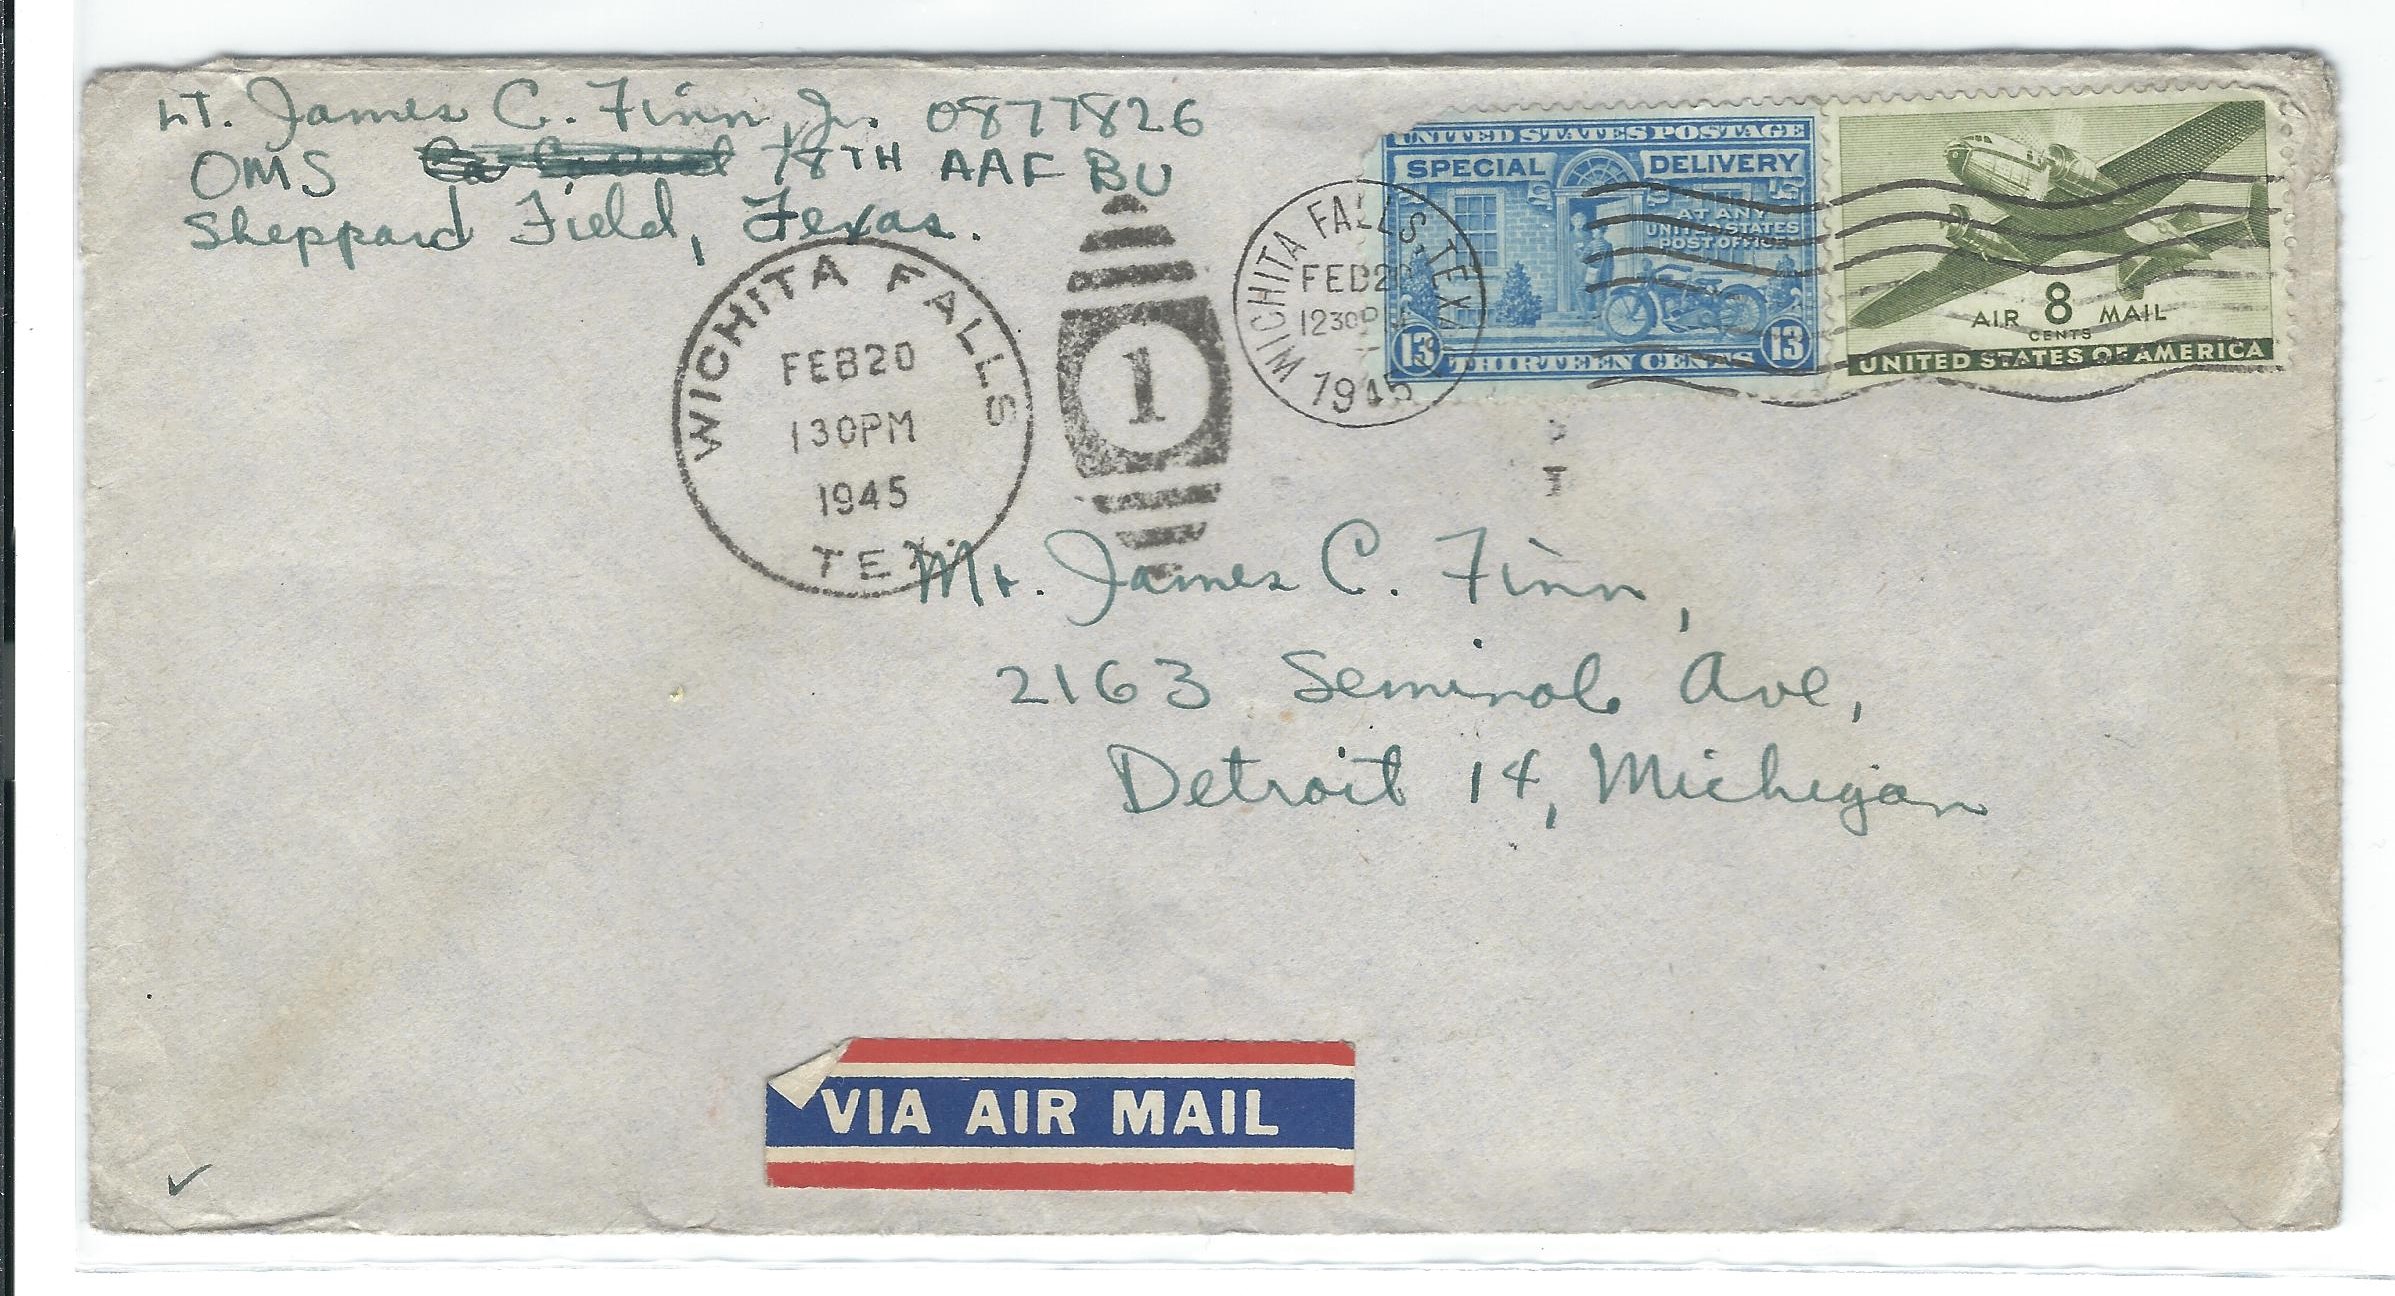 Lt. James C. Finn, Jr. 0877826
OMS 78TH AAF BU
Sheppard Field, Texas.
WICHITA FALLS
FEB 20
1 30PM
1945
TEX.
1
WICHITA FALLS, TEX.
FEB 20
12 30 PM
1945
UNITED STATES POSTAGE
SPECIAL DELIVERY
AT ANY
UNITED STATES
POST OFFICE
13 THIRTEEN CENTS 13
AIR 8 MAIL
CENTS
UNITED STATES OF AMERICA
Mr. James C. Finn,
2163 Seminole Ave,
Detroit 14, Michigan
VIA AIR MAIL